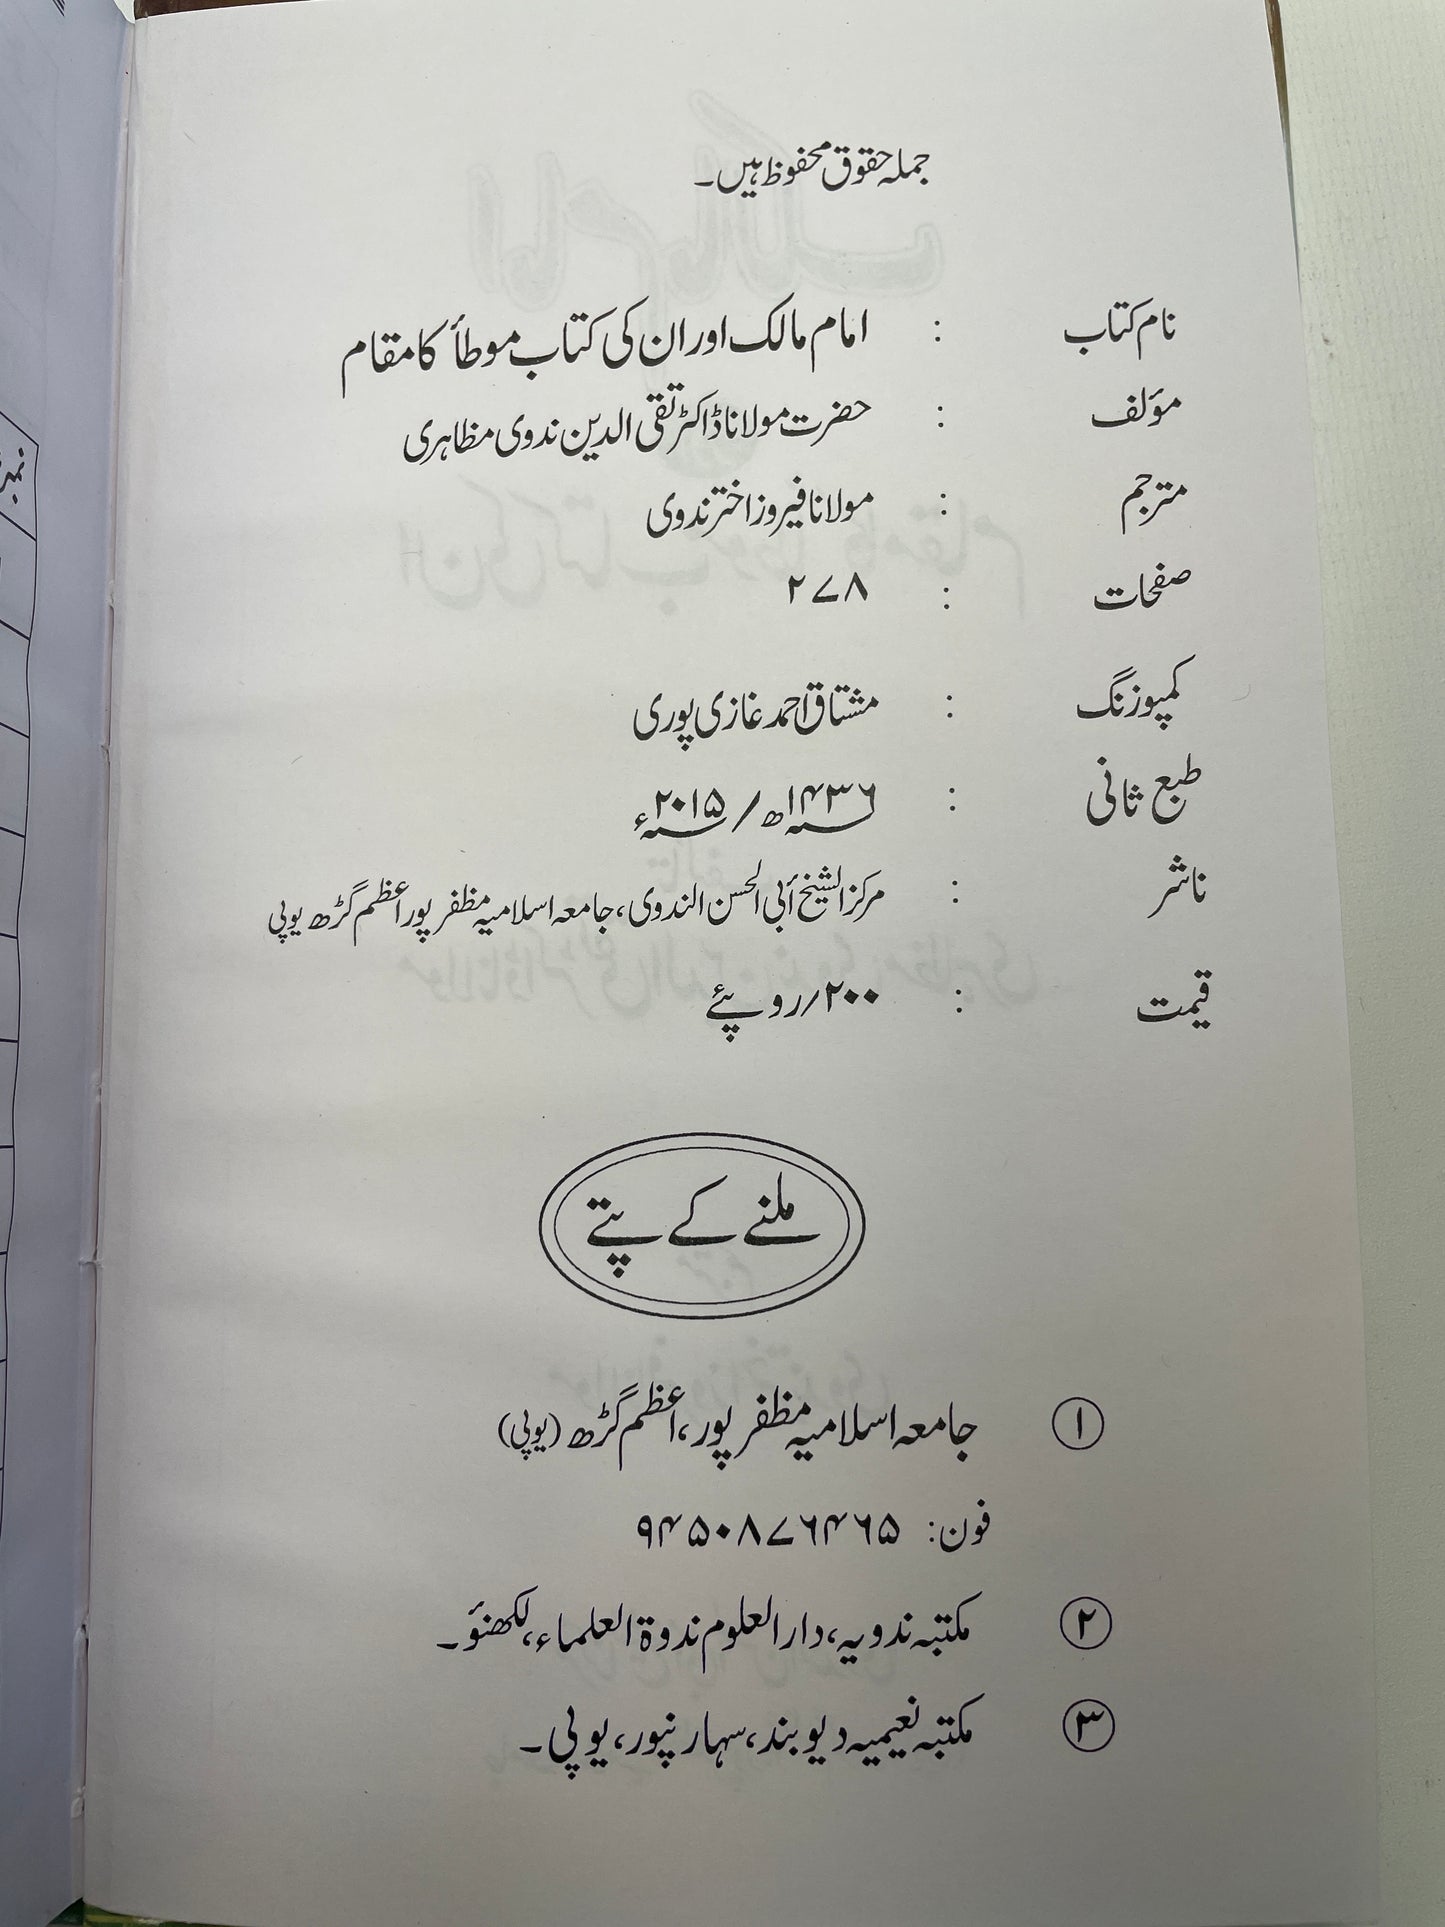 جملہ حقوق محفوظ ہیں۔
نام کتاب : امام مالک اور ان کی کتاب موطأ کا مقام
مؤلف : حضرت مولانا ڈاکٹر تقی الدین ندوی مظاہری
مترجم : مولانا فیروز اختر ندوی
صفحات : ۲۷۸
کمپوزنگ : مشتاق احمد غازی پوری
طبع ثانی : ۱۴۳۶ھ / ۲۰۱۵ء
ناشر : مرکز الشیخ أبی الحسن الندوی، جامعہ اسلامیہ مظفر پور اعظم گڑھ یوپی
قیمت : ۲۰۰/روپئے
ملنے کے پتے
① جامعہ اسلامیہ مظفر پور، اعظم گڑھ (یوپی)
فون: ۹۴۵۰۸۷۶۴۶۵
② مکتبہ ندویہ، دار العلوم ندوۃ العلماء، لکھنؤ۔
③ مکتبہ نعیمیہ دیوبند، سہارنپور، یوپی۔